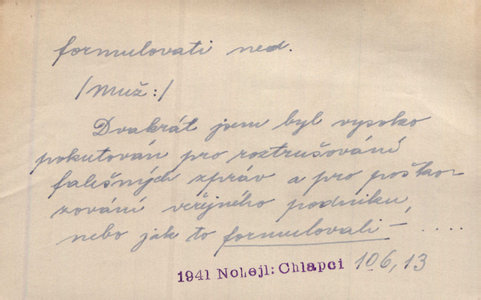 formulovati ned.
/Muž:/
Dvakrát jsem byl vysoko
pokutován pro roztrušování
falešných zpráv a pro poško-
zování veřejného podniku,
nebo jak to formulovali - ....
1941 Nohejl: Chlapci 106,13